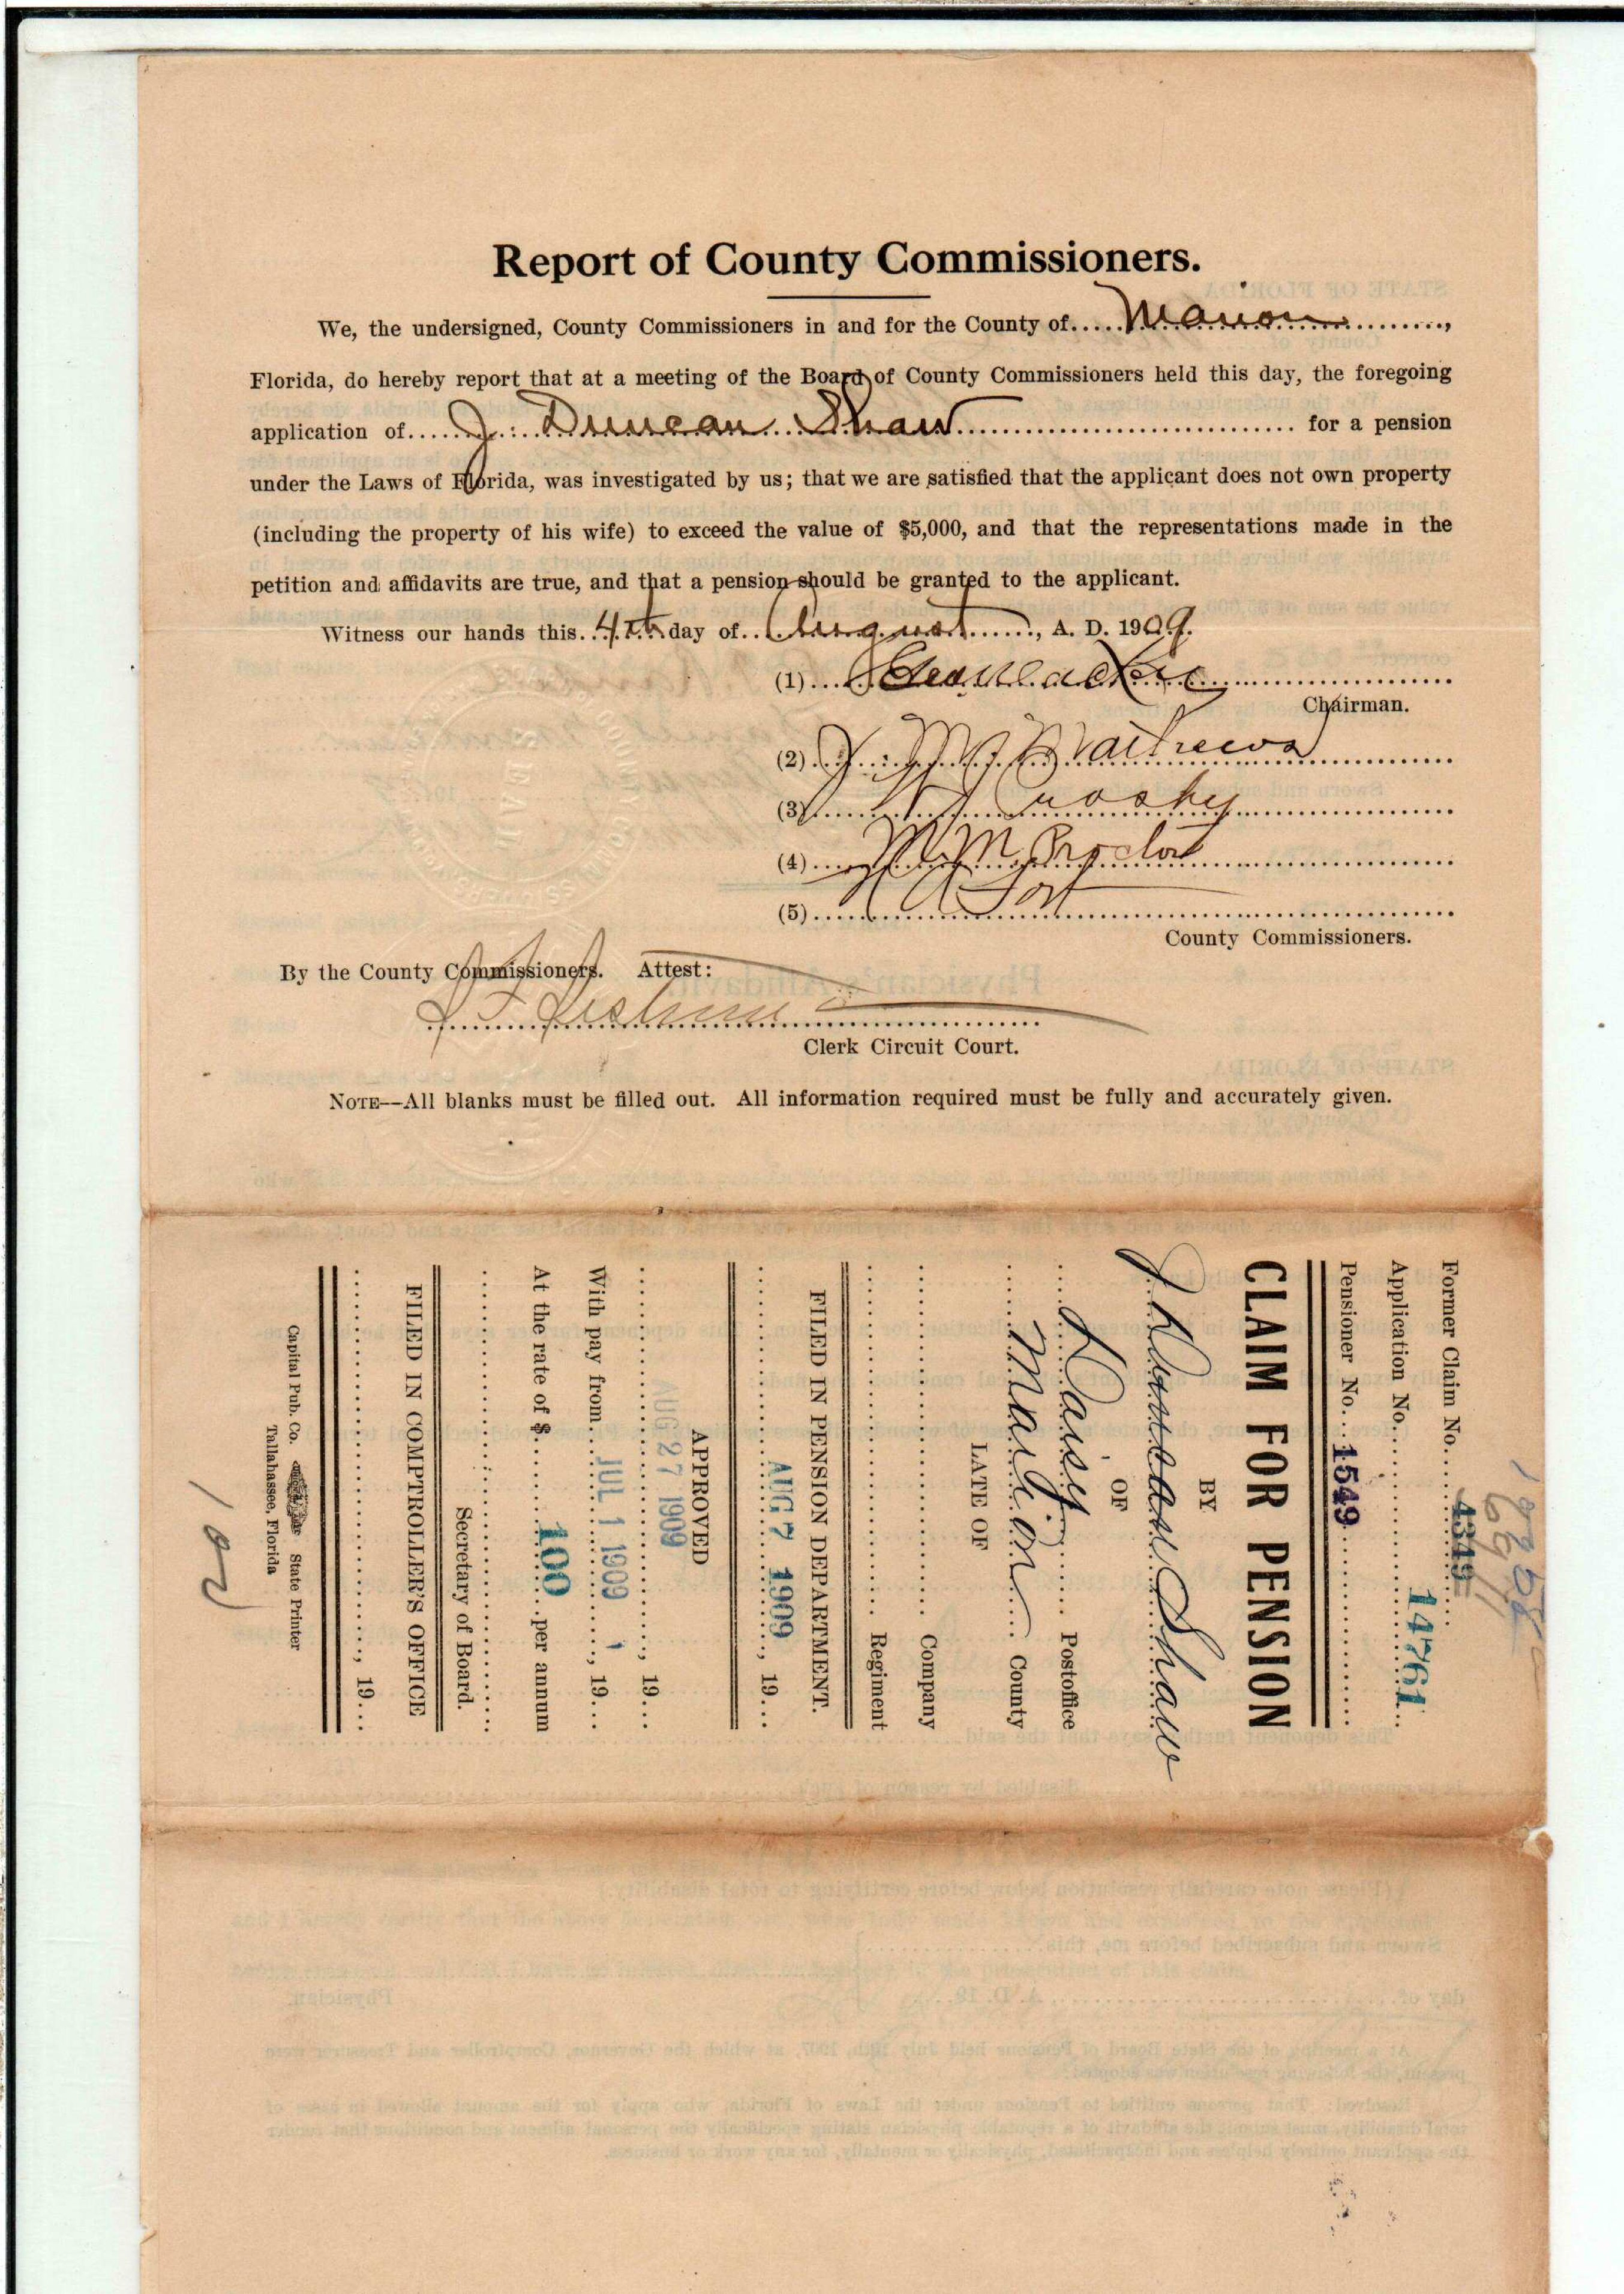 Report of County Commissioners.
We, the undersigned, County Commissioners in and for the County of.....Marion..........,
Florida, do hereby report that at a meeting of the Board of County Commissioners held this day, the foregoing
application of.....J. Duncan Shaw.......... for a pension
under the Laws of Florida, was investigated by us; that we are satisfied that the applicant does not own property
(including the property of his wife) to exceed the value of $5,000, and that the representations made in the
petition and affidavits are true, and that a pension should be granted to the applicant.
Witness our hands this..4th..day of..August......, A. D. 1909.
(1)
Chairman.
(2) Mathews
(3) Crosby
(4) M. M. Proctor
(5) Fort
County Commissioners.
By the County Commissioners. Attest:
Clerk Circuit Court.
NOTE—All blanks must be filled out. All information required must be fully and accurately given.
Former Claim No. 4349
Application No. 14761
Pensioner No. 1549
CLAIM FOR PENSION
BY
J Duncan Shaw
OF
Daisy Postoffice
Marion County
LATE OF
Company
Regiment
FILED IN PENSION DEPARTMENT.
AUG 7 1909, 19...
APPROVED
AUG 27 1909, 19...
With pay from JUL 1 1909, 19...
At the rate of $ 100 per annum
Secretary of Board.
FILED IN COMPTROLLER'S OFFICE
, 19...
Capital Pub. Co. State Printer
Tallahassee, Florida